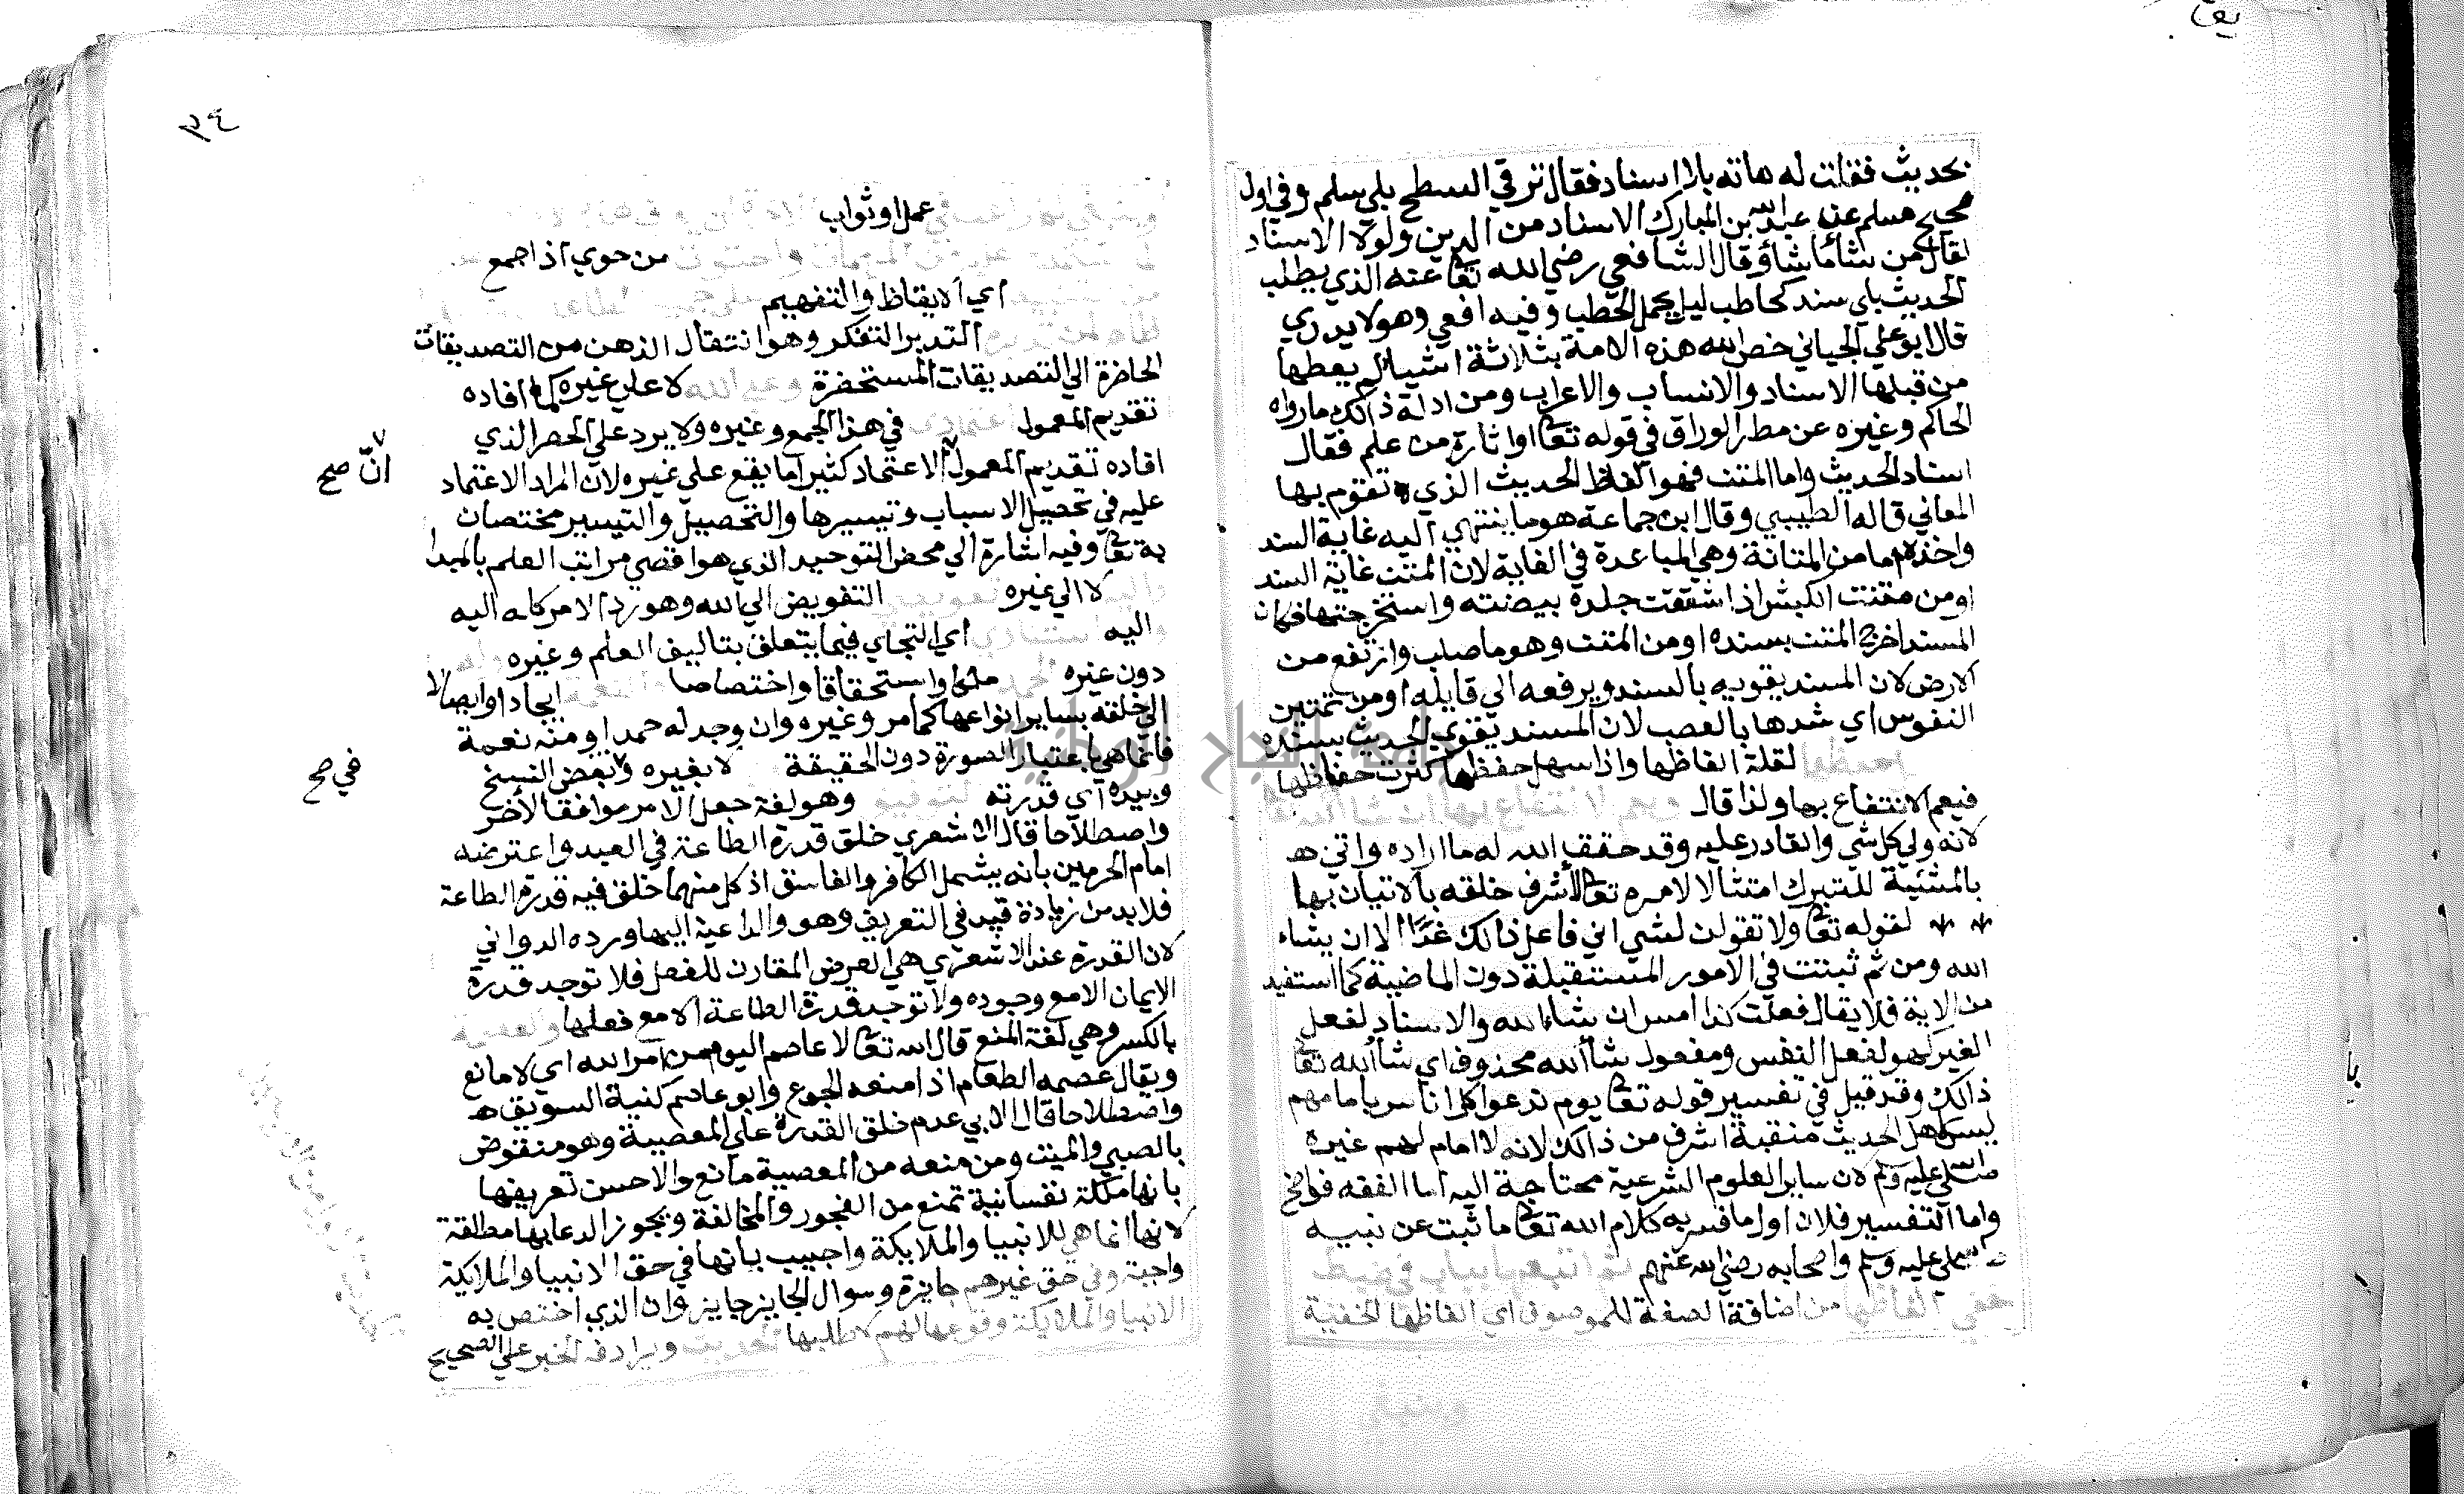 بحديث فقلت له هاته بلا اسناد فقال ترقي السطح بلي سلم وفي اول
صحيح مسلم عن عبد الله بن المبارك الاسناد من الدين ولولا الاسناد
لقال من شأ ما شأ وقال الشافعي رضي الله تعا عنه الذي يطلب
الحديث بلي سند كحاطب ليل يحمل الحطب وفيه افعي وهو لا يدري
قال ابو علي الجياني خص الله هذه الامة بثلاثة اشيا لم يعطها
من قبلها الاسناد والانساب والاعراب ومن ادلة ذالك ما رواه
الحاكم وغيره عن مطر الوراق في قوله تعا او اثارة من علم فقال
اسناد الحديث واما المتن فهو الفاظ الحديث الذي تقوم بها
المعاني قاله الطيبي وقال ابن جماعة هو ما ينتهي اليه غاية السند
واخذه اما من المتانة وهي المباعدة في الغاية لان المتن غاية السند
او من متنت الكبش اذا شققت جلدة بيضته واستخرجتها فكان
المسند اخرج المتن بسنده او من المتن وهو ما صلب وارتفع من
الارض لان المسند يقويه بالسند ويرفعه الي قايله او من تمتين
النفوس اي شدها بالعصب لان المسند يقوي الحديث بسنده
لقلة الفاظها واذا سهل حفظها كثرت حفاظها
فيعم الانتفاع بها ولذا قال
لانه ولي كل شي والقادر عليه وقد حقق الله له ما اراده واتي هـ
بالمشئية للتبرك امتثالا لامره تعا لأشرف خلقه بالاتيان بها
لقوله تعا ولا تقولن لشي اني فاعل ذالك غدًا الا ان يشاء
الله ومن ثم ثبتت في الامور المستقبلة دون الماضية كما استفيد
من الاية فلا يقال فعلت كذا امس ان شاء الله والاسناد لفعل
الغير لا هو لفعل النفس ومفعول شأ الله محذوف اي شأ الله تعا
ذالك وقد قيل في تفسير قوله تعا يوم ندعوا كل اناس بامامهم
ليس لاهل الحديث منقبة اشرف من ذالك لانه لا امام لهم غيره
صلي الله عليه وسلم لان ساير العلوم الشرعية محتاجة اليه اما الفقه فواضح
واما التفسير فلان اول ما فسر به كلام الله تعا ما ثبت عن نبيه
صلي الله عليه وسلم واصحابه رضي الله عنهم
من اضافة الصفة للموصوف اي الفاظها الخفية
٣٤
عمل او ثواب
من حوي اذا جمع
اي الايقاظ والتفهيم
التدبر التفكر وهو انتقال الذهن من التصديقات
الحاضرة الي التصديقات المستحضرة لا علي غيره كما افاده
تقديم المعمول في هذا الجمع وغيره ولا يرد علي الحصر الذي
افاده تقديم المعمول الاعتماد كثيرا ما يقع علي غيره لان المراد الاعتماد
انّ صح
عليه في تحصيل الاسباب وتيسيرها والتحصيل والتيسير مختصان
به تعا وفيه اشارة الي محض التوحيد الذي هو اقصي مراتب العلم بالمبدا
لا الي غيره التفويض الي الله وهو رد الامر كله اليه
اليه اي التجاي فيما يتعلق بتاليف العلم وغيره
دون غيره ملكا واستحقاقا واختصاصا ايجادا وايصالا
الي خلقه بساير انواعها كما مر وغيره وان وجد له حمد او منه نعمة
فانما هي باعتبار الصورة دون الحقيقة لا بغيره وبعض النسخ
في صح
وبيده اي قدرته وهو لغة جعل الامر موافقا لأخر
واصطلاحا قال الاشعري خلق قدرة الطاعة في العبد واعترضه
امام الحرمين بانه يشمل الكافر والفاسق اذ كل منهما خلق فيه قدرة الطاعة
فلا بد من زيادة قيد في التعريف وهو والداعية اليها ورده الدواني
لان القدرة عند الاشعري هي العرض المقارن للفعل فلا توجد قدرة
الايمان الا مع وجوده ولا توجد قدرة الطاعة الا مع فعلها
بالكسر وهي لغة المنع قال الله تعا لا عاصم اليوم من امر الله اي لا مانع
ويقال عصمه الطعام اذا منعه الجوع وابو عاصم كنية السويق هـ
واصطلاحا قال الابي عدم خلق القدرة علي المعصية وهو منقوض
بالصبي والميت ومن منعه من المعصية مانع والاحسن تعريفها
بانها ملكة نفسانية تمنع من الفجور والمخالفة ويجوز الدعا بها مطلقة
لانها انما هي للانبيا والملايكة واجيب بانها في حق الانبيا والملايكة
واجبة وفي حق غيرهم جايزة وسوال الجايز جايز وان الذي اختص به
الانبيا والملايكة وقوعها لهم لا طلبها ويرادف الخبر علي الصحيح